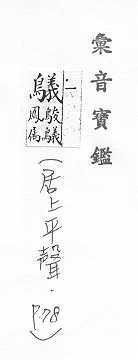 彙音寶鑑
一
鸃
鵔鸃
鳳属
(居上平聲．P.78)